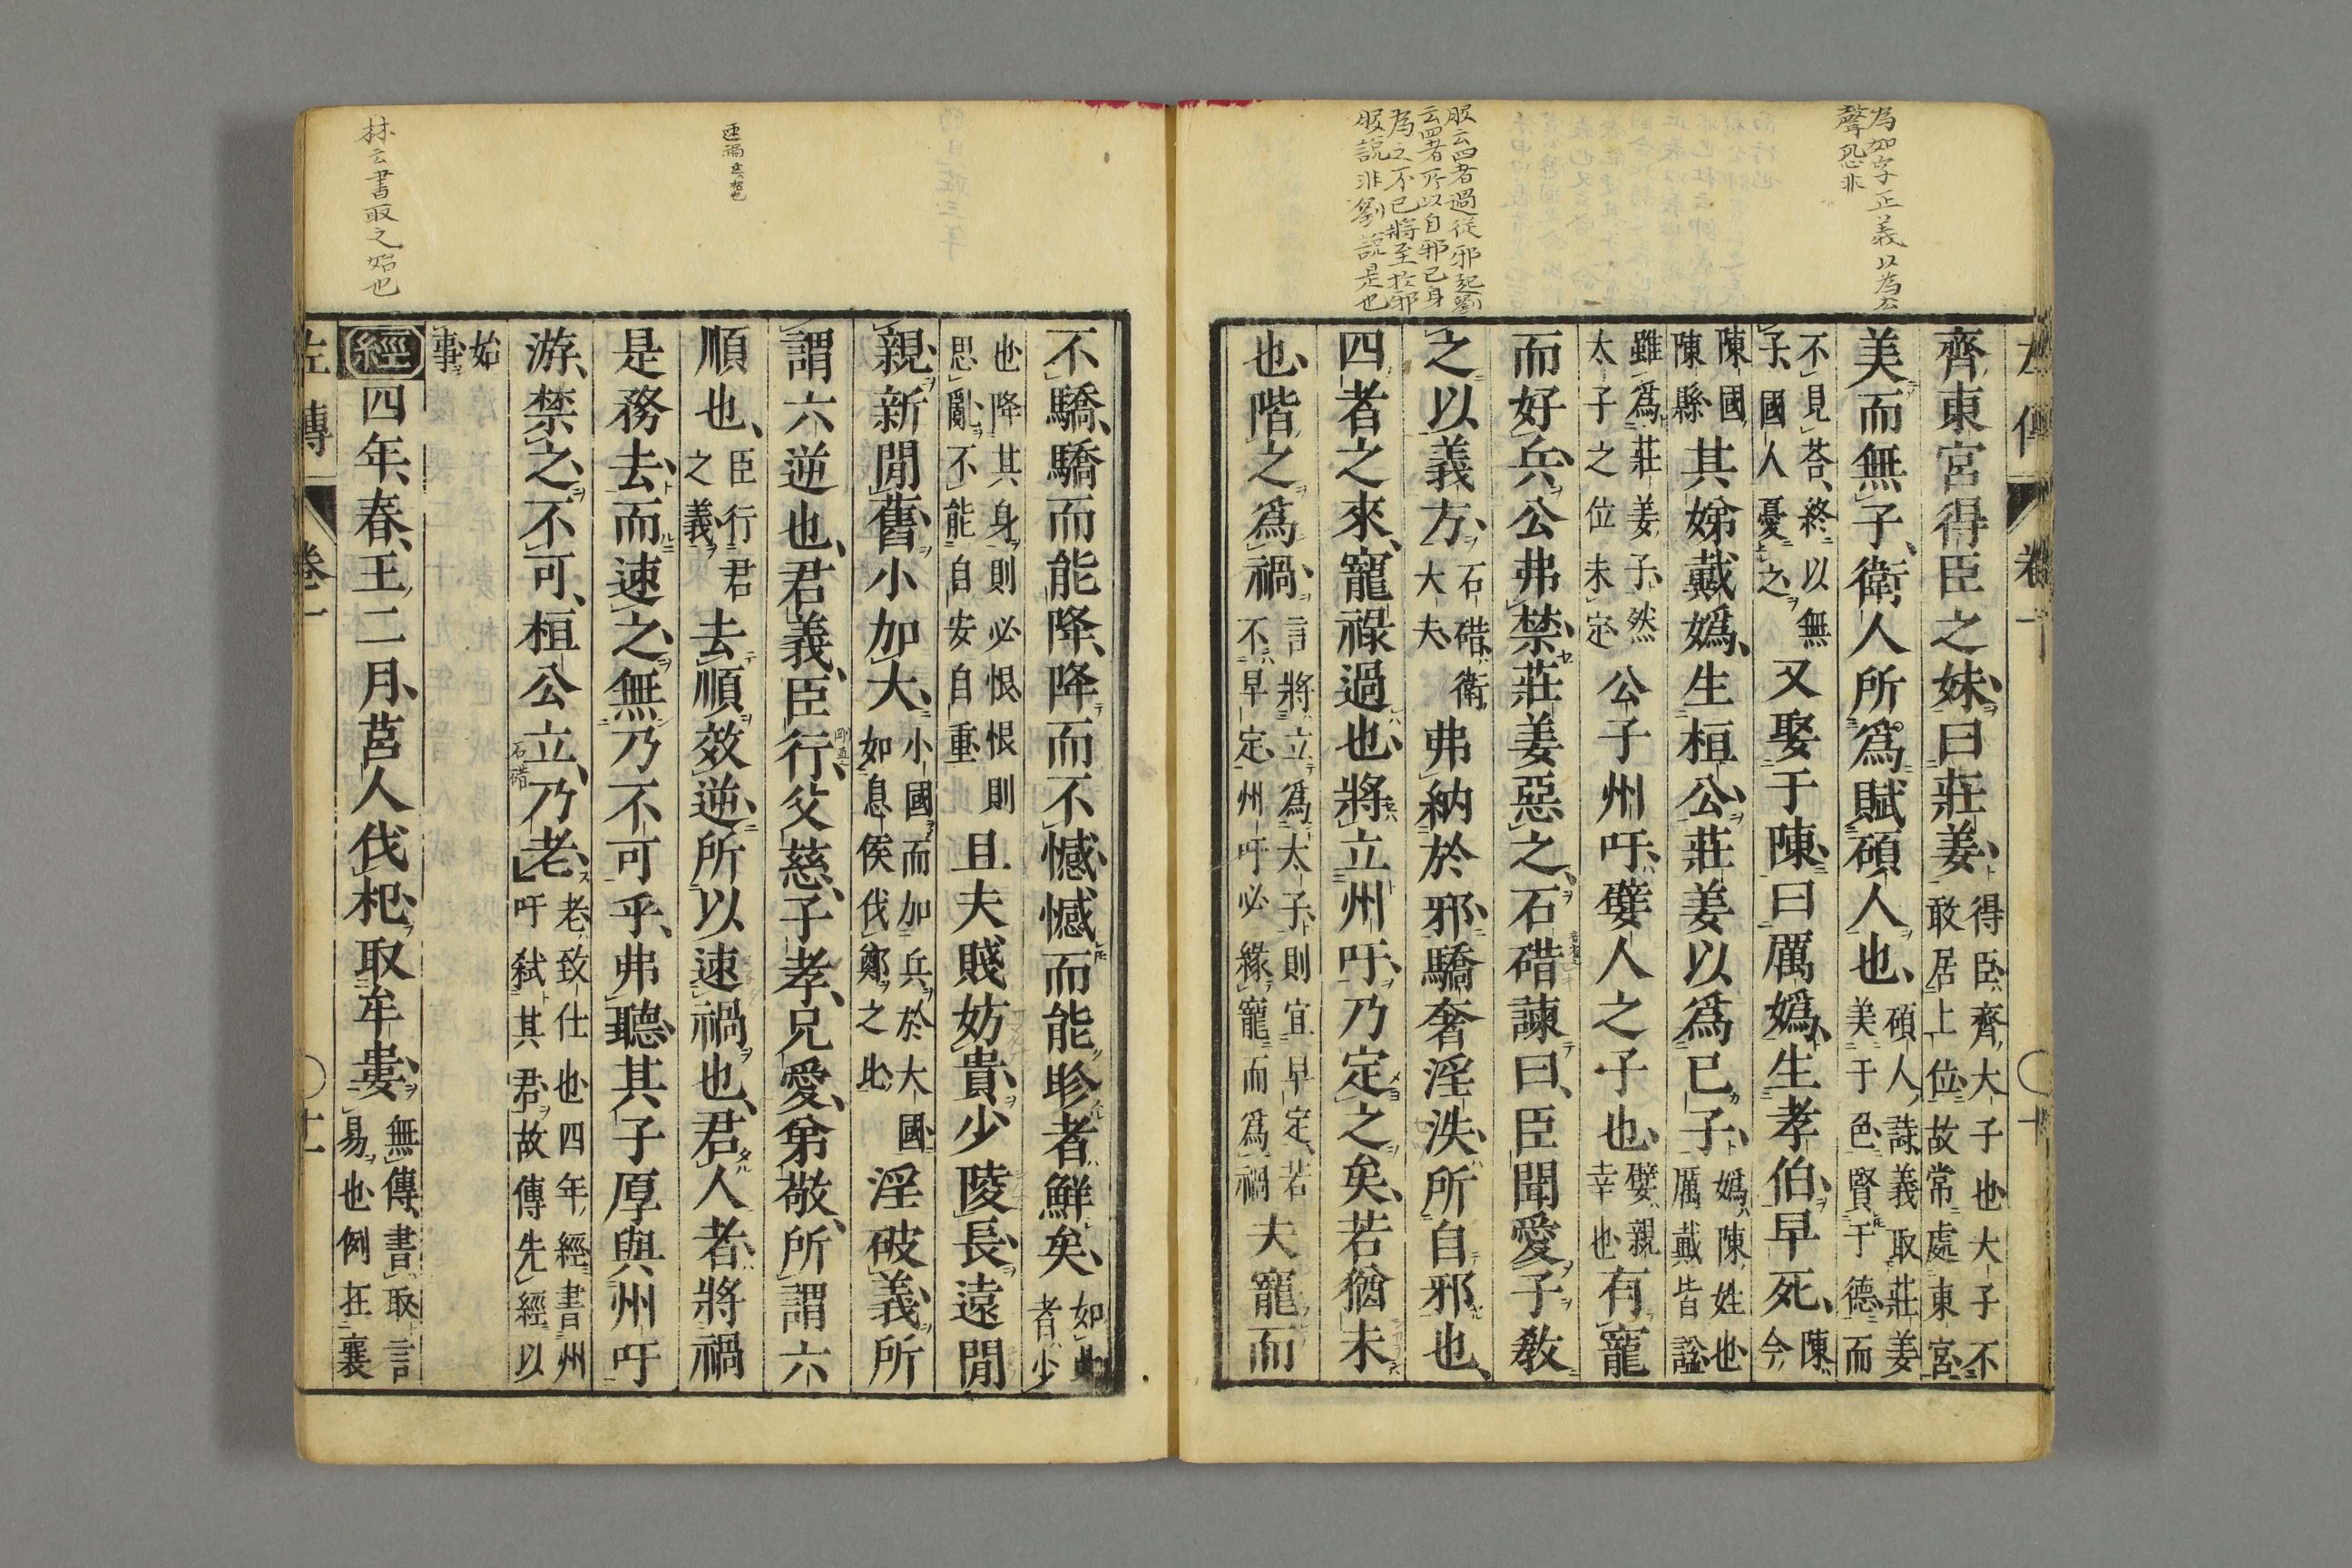 為如字正義以為去
聲恐非
服云四者過從邪起劉
云四者所以自邪己身
為之不已將至於邪
服說非劉說是也
左傳 卷一 ○十
齊東宮得臣之妹曰莊姜得臣齊大子也大子不敢居上位故常處東宮
美而無子衛人所爲賦碩人也碩人詩義取莊姜美于色賢于德而
不見荅終以無子國人憂之又娶于陳曰厲嬀生孝伯早死陳今
陳國陳縣其娣戴嬀生桓公莊姜以爲己子嬀陳姓也厲戴皆諡
雖爲莊姜子然太子之位未定公子州吁嬖人之子也嬖親幸也有寵
而好兵公弗禁莊姜惡之石碏諫曰臣聞愛子教
之以義方石碏衛大夫弗納於邪驕奢淫泆所自邪也
四者之來寵祿過也將立州吁乃定之矣若猶未
也階之爲禍言將立爲太子則宜早定若不早定州吁必緣寵而爲禍夫寵而
不驕驕而能降降而不憾憾而能眕者鮮矣如此者少
也降其身則必恨恨則思亂不能自安自重且夫賤妨貴少陵長遠閒
親新閒舊小加大小國而加兵於大國如息侯伐鄭之比淫破義所
謂六逆也君義臣行父慈子孝兄愛弟敬所謂六
順也臣行君之義去順效逆所以速禍也君人者將禍
是務去而速之無乃不可乎弗聽其子厚與州吁
游禁之不可桓公立乃老老致仕也四年經書州吁弒其君故傳先經以
石碏
始事
經四年春王二月莒人伐杞取牟婁無傳書取言易也例在襄
左傳 卷一 ○十一
速禍
林云書取之始也